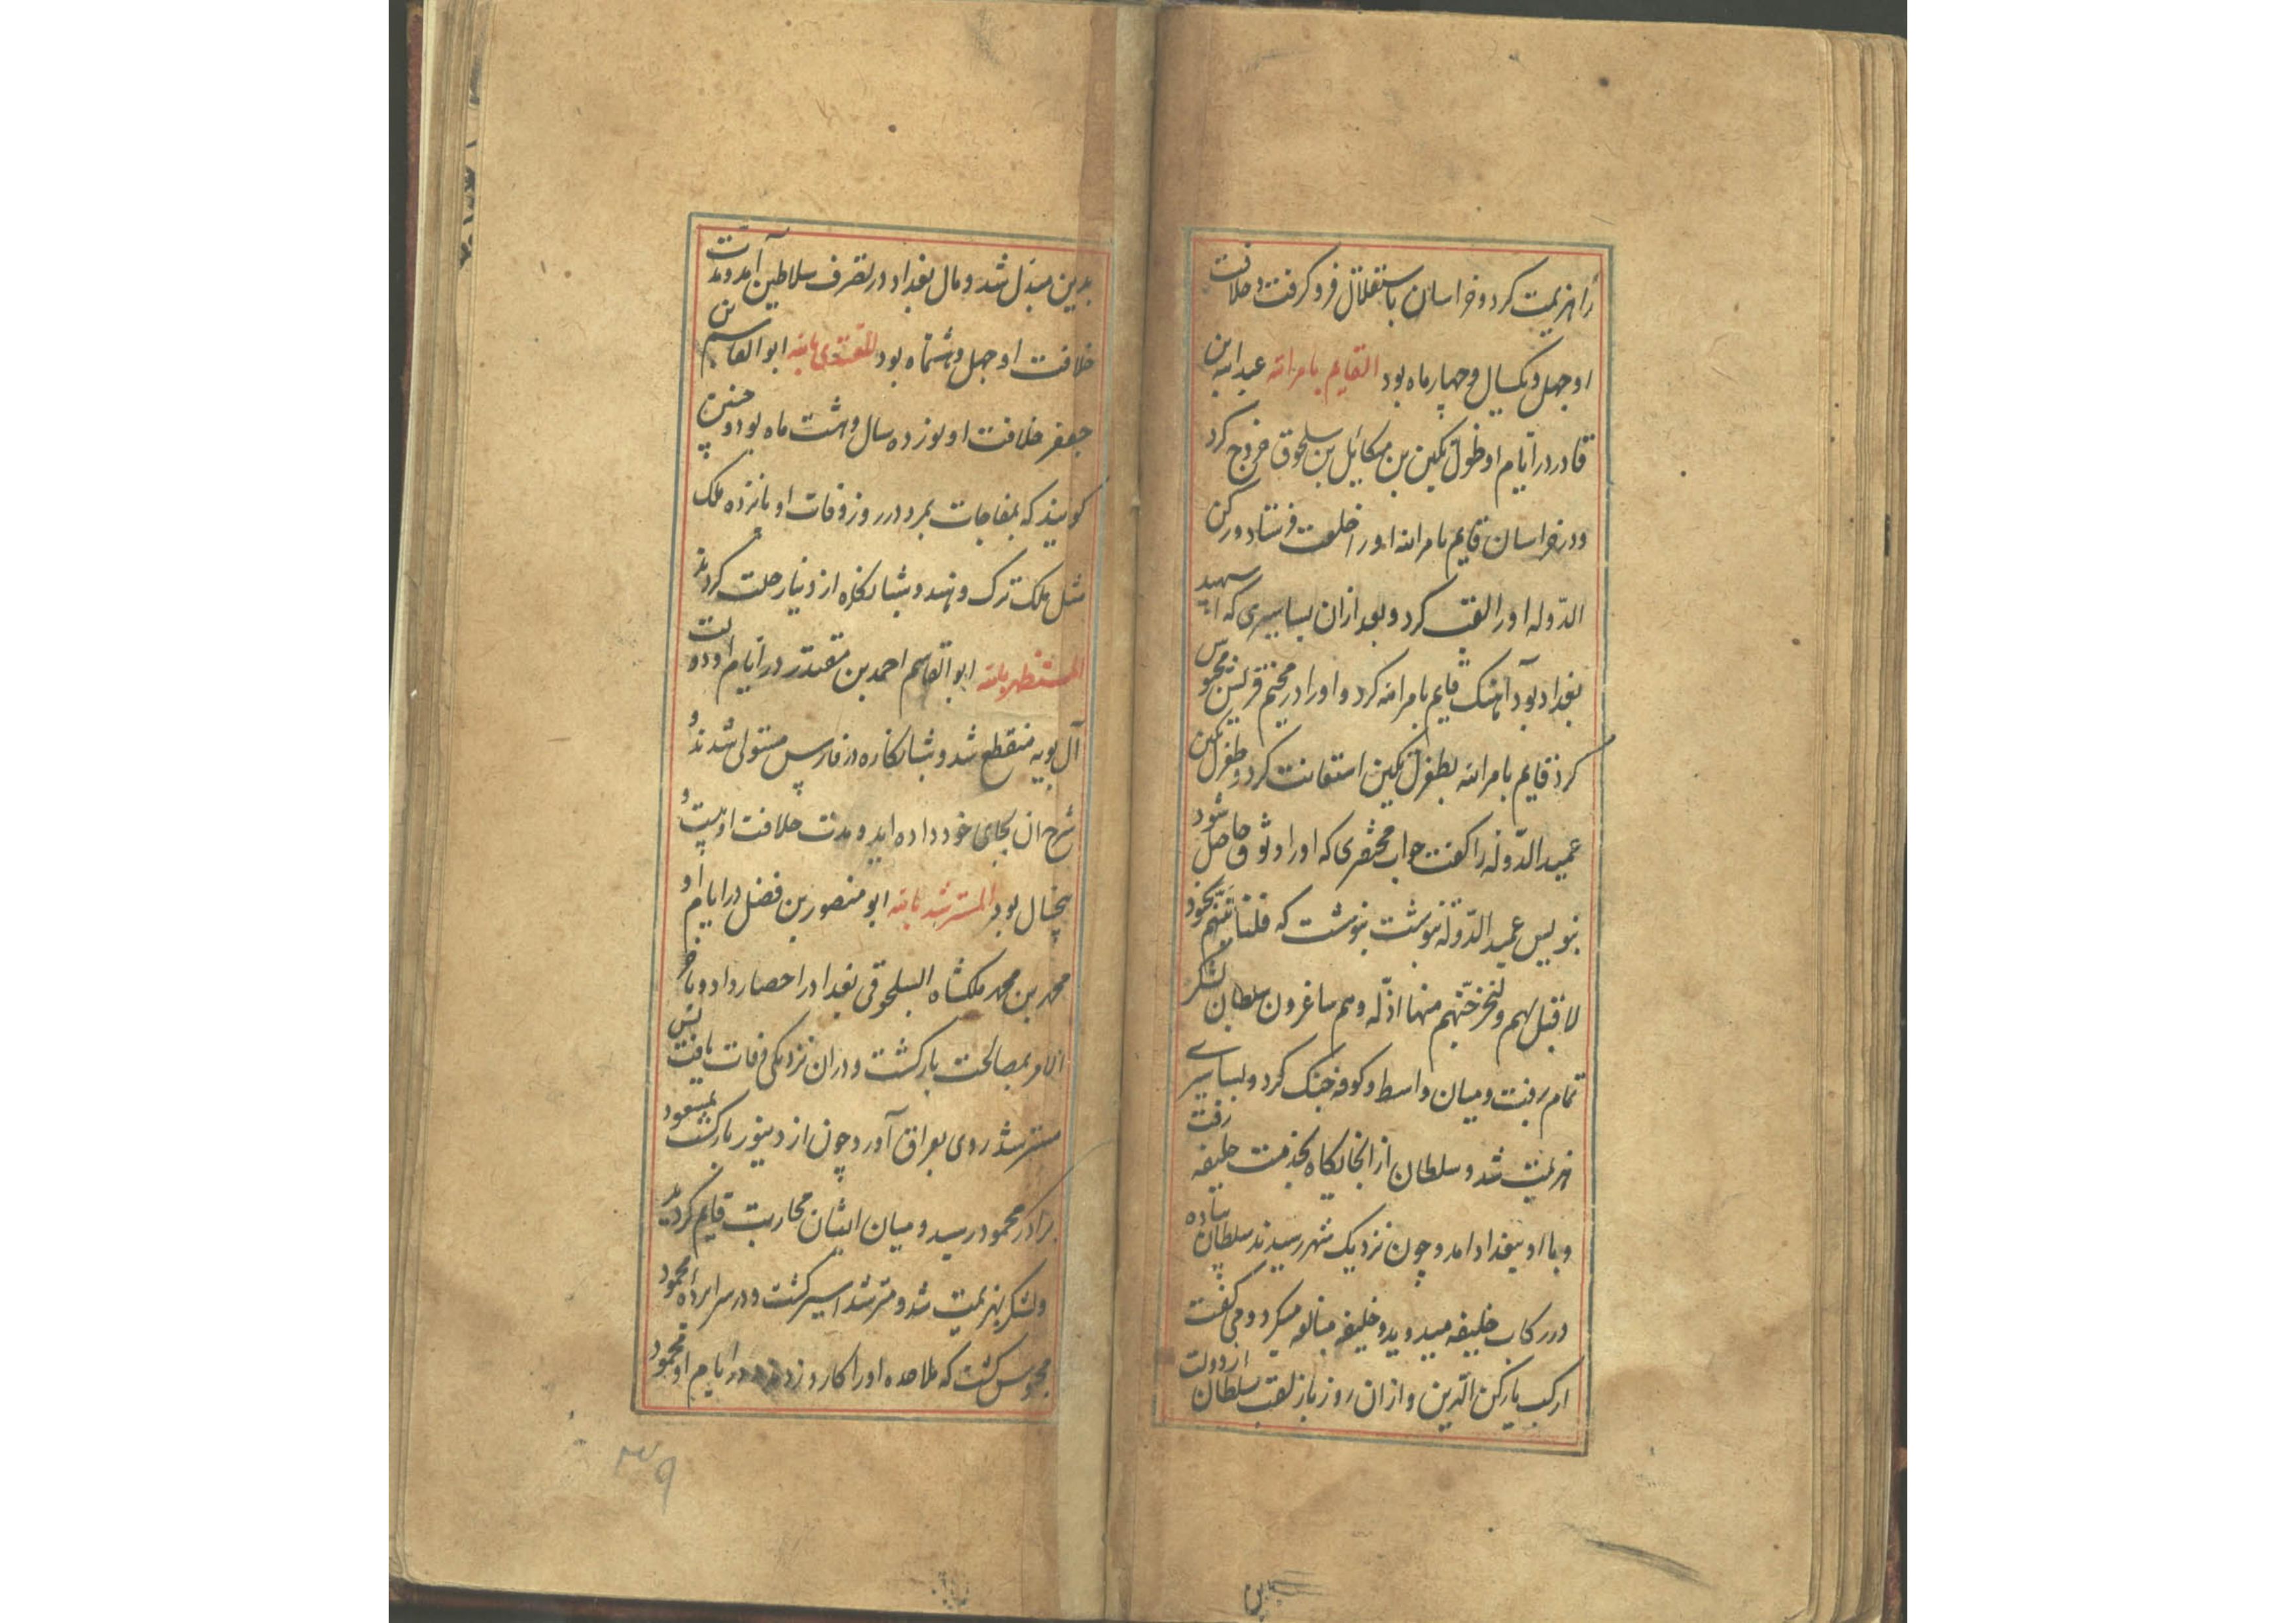 را هزیمت کرد و خراسان باستقلال فرو گرفت و خلافت
او چهل و یکسال و چهار ماه بود القایم بامرالله عبدالله بن
قادر در ایام او طغرل تکین بن میکائیل بن سلجوق خروج کرد
و در خراسان قایم بامرالله او را خلعت فرستاد و رکن
الدوله او را لقب کرد و بعد ازان بساسیری که اسپهبد
بغداد بود آهنک قایم بامرالله کرد و او را در محبس
کرد قایم بامرالله بطغرل تکین استعانت کرد و طغرل تکین
عمید الدوله را کفت جواب مختصری که او را وثوق حاصل شود
بنویس عمید الدوله نبوشت که فلناتینهم بجنود
لا قبل لهم و لنخرجنهم منها اذلة و هم صاغرون سلطان لشکر
تمام برفت و میان واسط و کوفه جنک کرد و بساسیری
هزیمت شد و سلطان از انجایکاه بخدمت خلیفه رفت
و با او ببغداد امد و چون نزدیک شهر رسیدند سلطان پیاده
در رکاب خلیفه میدوید و خلیفه مبالغه میکرد و می کفت
ارکب یا رکن الدین و ازان روز باز لقب سلطان از دولت
بدین مبدل شد و مال بغداد در تصرف سلاطین آمد و مدت
خلافت او چهل و هشت ماه بود المقتدی بالله ابوالقاسم بن
جعفر خلافت او نوزده سال و هشت ماه بود و چنین
کویند که بمفاجات بمرد در روز وفات او پانزده ملک
مثل ملک ترک و هند و شبانکاره از دنیا رحلت کردند
المستظهر بالله ابوالقاسم احمد بن مقتدر در ایام او دولت
آل بویه منقطع شد و شبانکاره در فارس مستولی شدند و
شرح ان بجای خود داده اید و مدت خلافت او بیست و
پنجسال بود المسترشد بالله ابو منصور بن فضل در ایام او
محمد بن محمد ملکشاه السلجوقی بغداد را حصار داد و باخر
الامر بمصالحت بازکشت و دران نزدیکی وفات یافت پس
مسترشد روی بعراق آورد چون از دینور بازکشت بمسعود
برادر محمود رسید و میان ایشان محاربت قایم کردید
و لشکر بهزیمت شد و مسترشد اسیر کشت و در سراپرده محمود
محبوس کشت که ملاحده او را کارد زدند در ایام او محمود